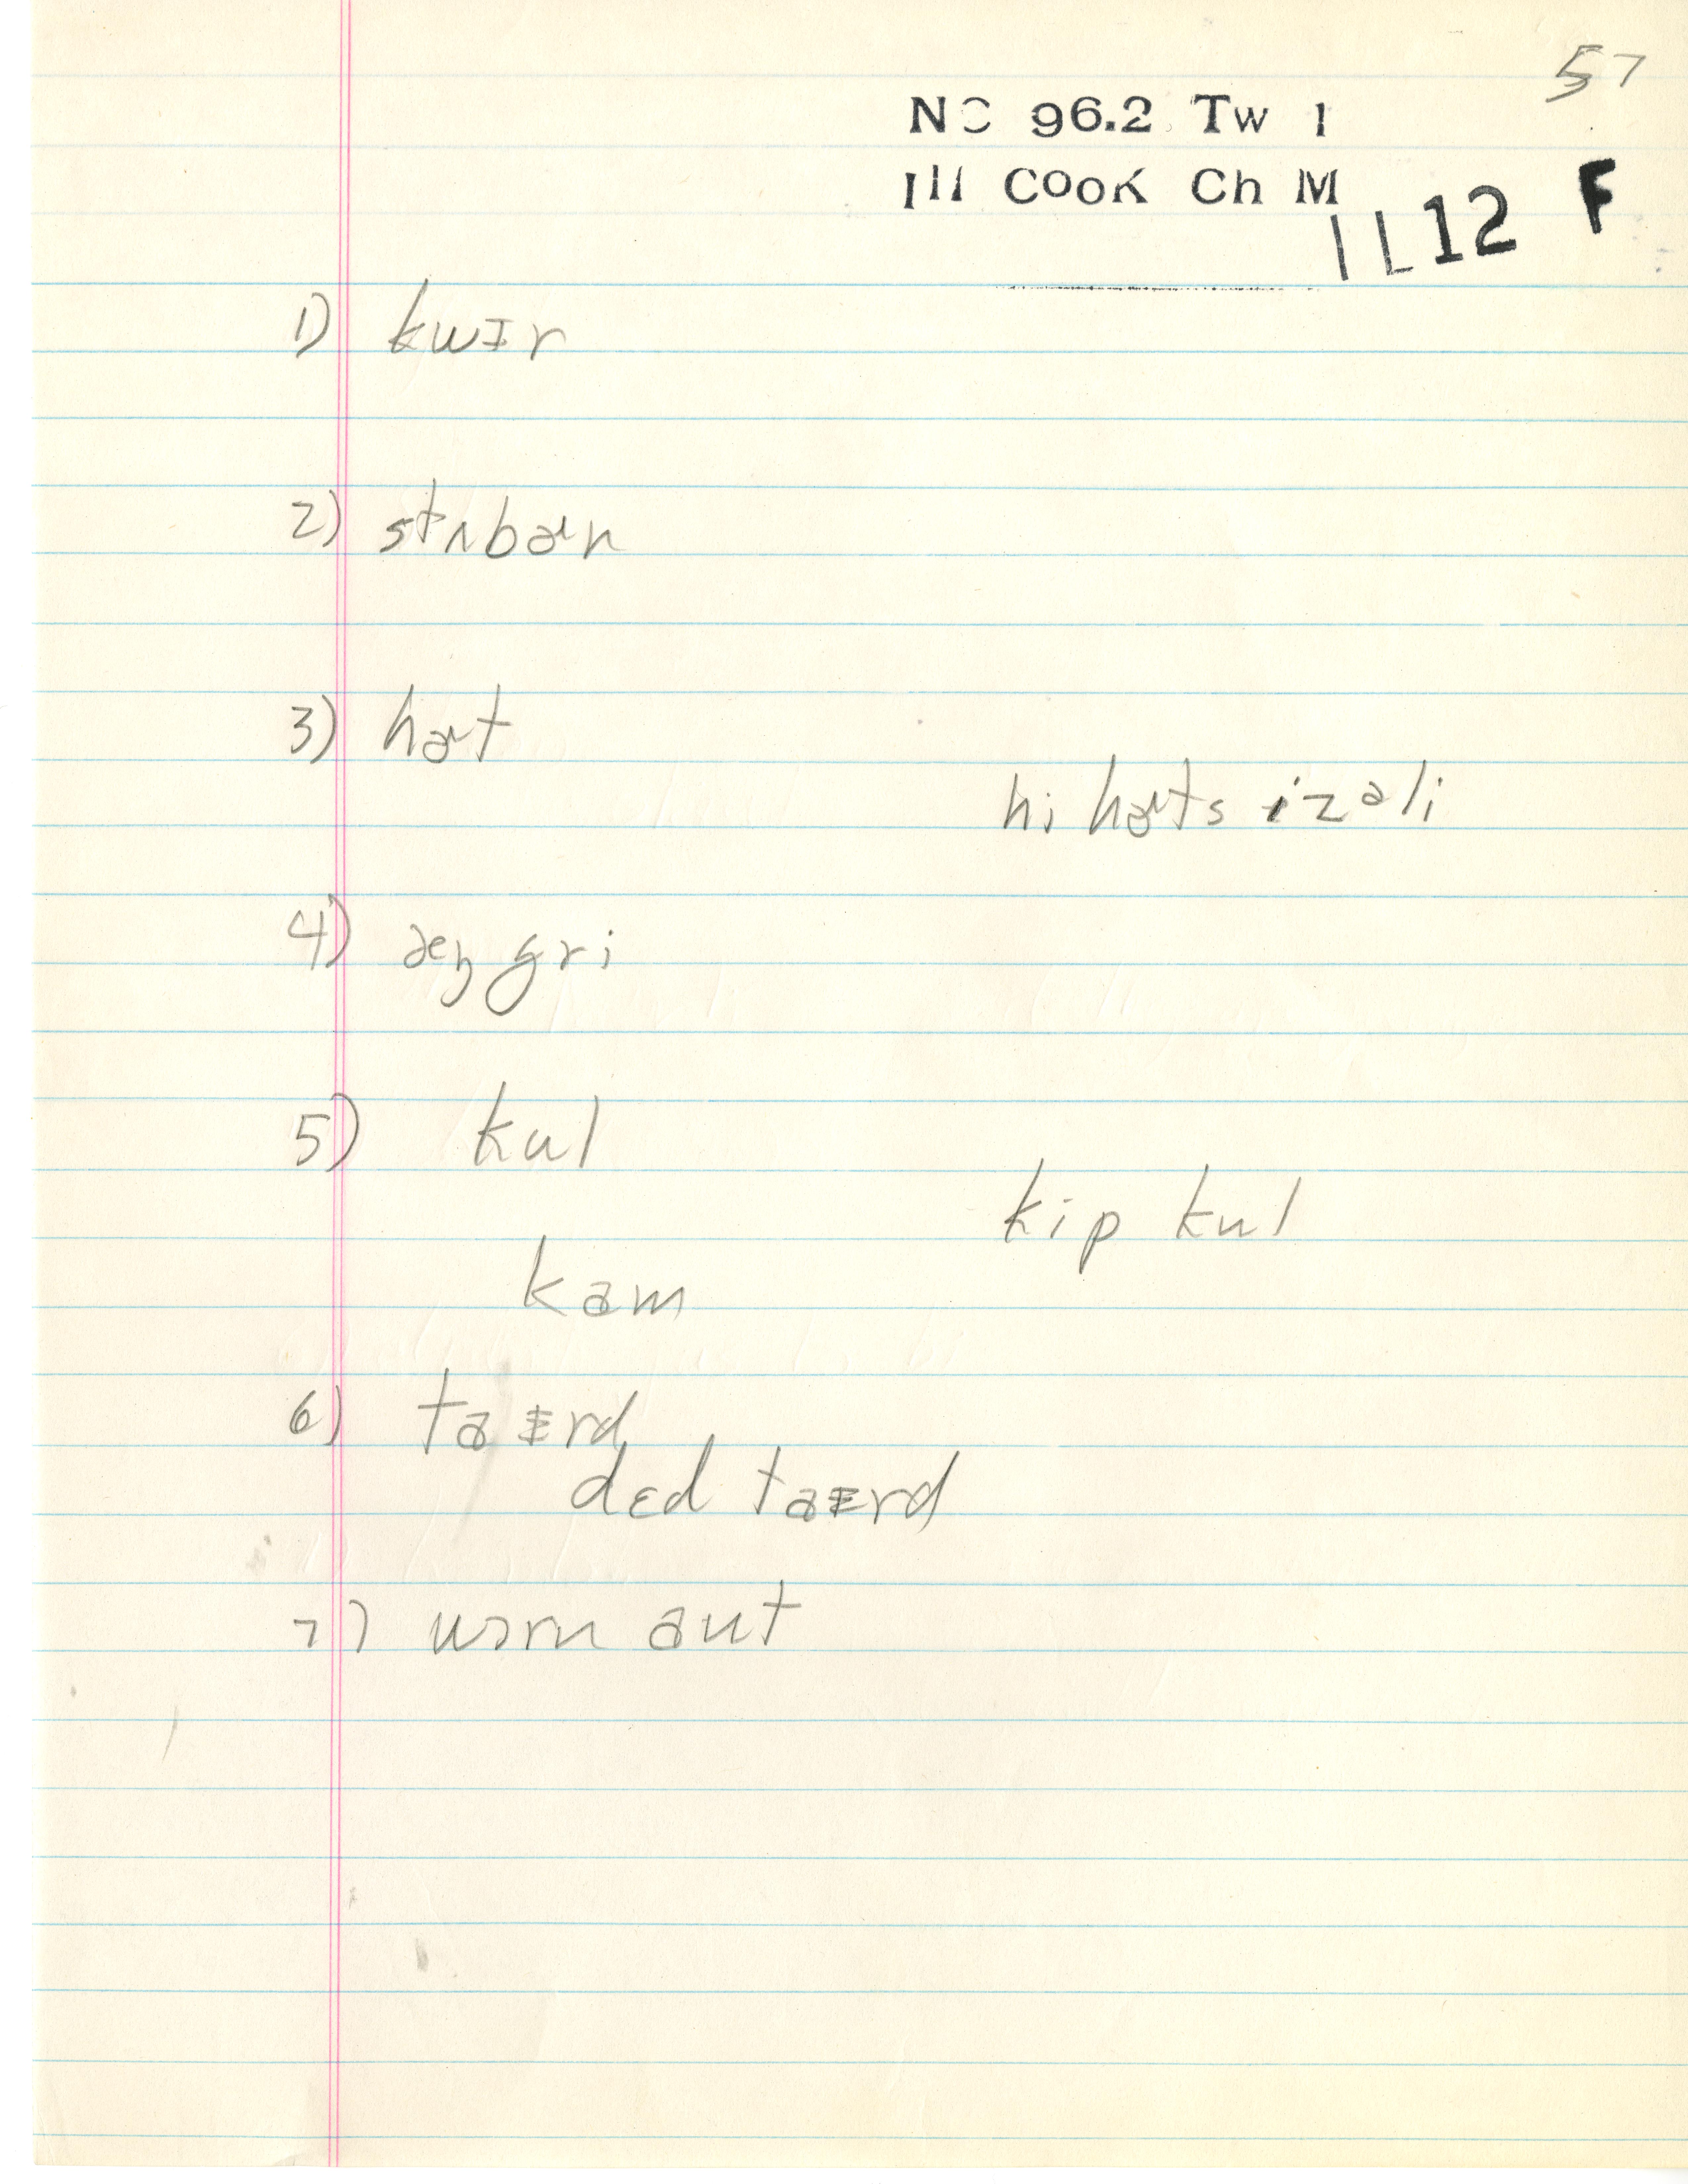 57
NC 96.2 Tw 1
Ill Cook Ch M
IL12 F
1) kwɪr
2) stʌbɚn
3) hɚt
hi hɚts izəli
4) æŋgri
5) kul
kip kul
kam
6) taɪrd
dɛd taɪrd
7) wɔrn aut